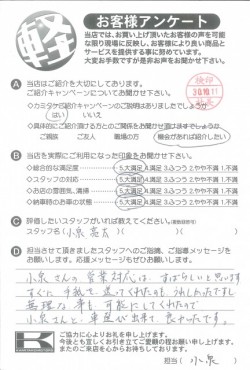 軽
お客様アンケート
当店では、お買い上げ頂いたお客様の声を可能
な限り現場に反映し、お客様により良い商品と
サービスを提供する事に努めています。
大変お手数ですが是非お声をお聞かせ下さい。
A 当店はご紹介を大切にしております。
ご紹介キャンペーンについてお聞かせ下さい。
◇カミタケ紹介キャンペーンのご説明はありましたでしょうか
はい いいえ
◇具体的にご紹介頂ける方とのご関係をお聞かせ頂けますでしょうか
ご親族 ご友人 職場の方 機会があれば紹介したい
B 当店を実際にご利用になった印象をお聞かせ下さい。
◇総合的な満足度 5.大満足 4.満足 3.ふつう 2.やや不満 1.不満
◇スタッフの対応 5.大満足 4.満足 3.ふつう 2.やや不満 1.不満
◇お店の雰囲気、清掃 5.大満足 4.満足 3.ふつう 2.やや不満 1.不満
◇納車時のお車の状態 5.大満足 4.満足 3.ふつう 2.やや不満 1.不満
C 評価したいスタッフがいれば教えてください。
スタッフ名( 小泉 亮太 )( )( )
D 担当させて頂きましたスタッフへのご指摘、ご指導メッセージを
お願いします。応援メッセージもぜひお願いします。
小泉さんの営業対応は、すばらしいと思います
すぐに手紙で、送ってくれたのも、うれしかったですし
無理な事も可能にしてくれたので
小泉さんと車屋が出来て良かったです。
ご協力に心よりお礼を申し上げます。
今後とも宜しくお引き立てご愛顧の程お願い申し上げます。
またのご来店を心からお待ちしております。
担当( 小泉 )